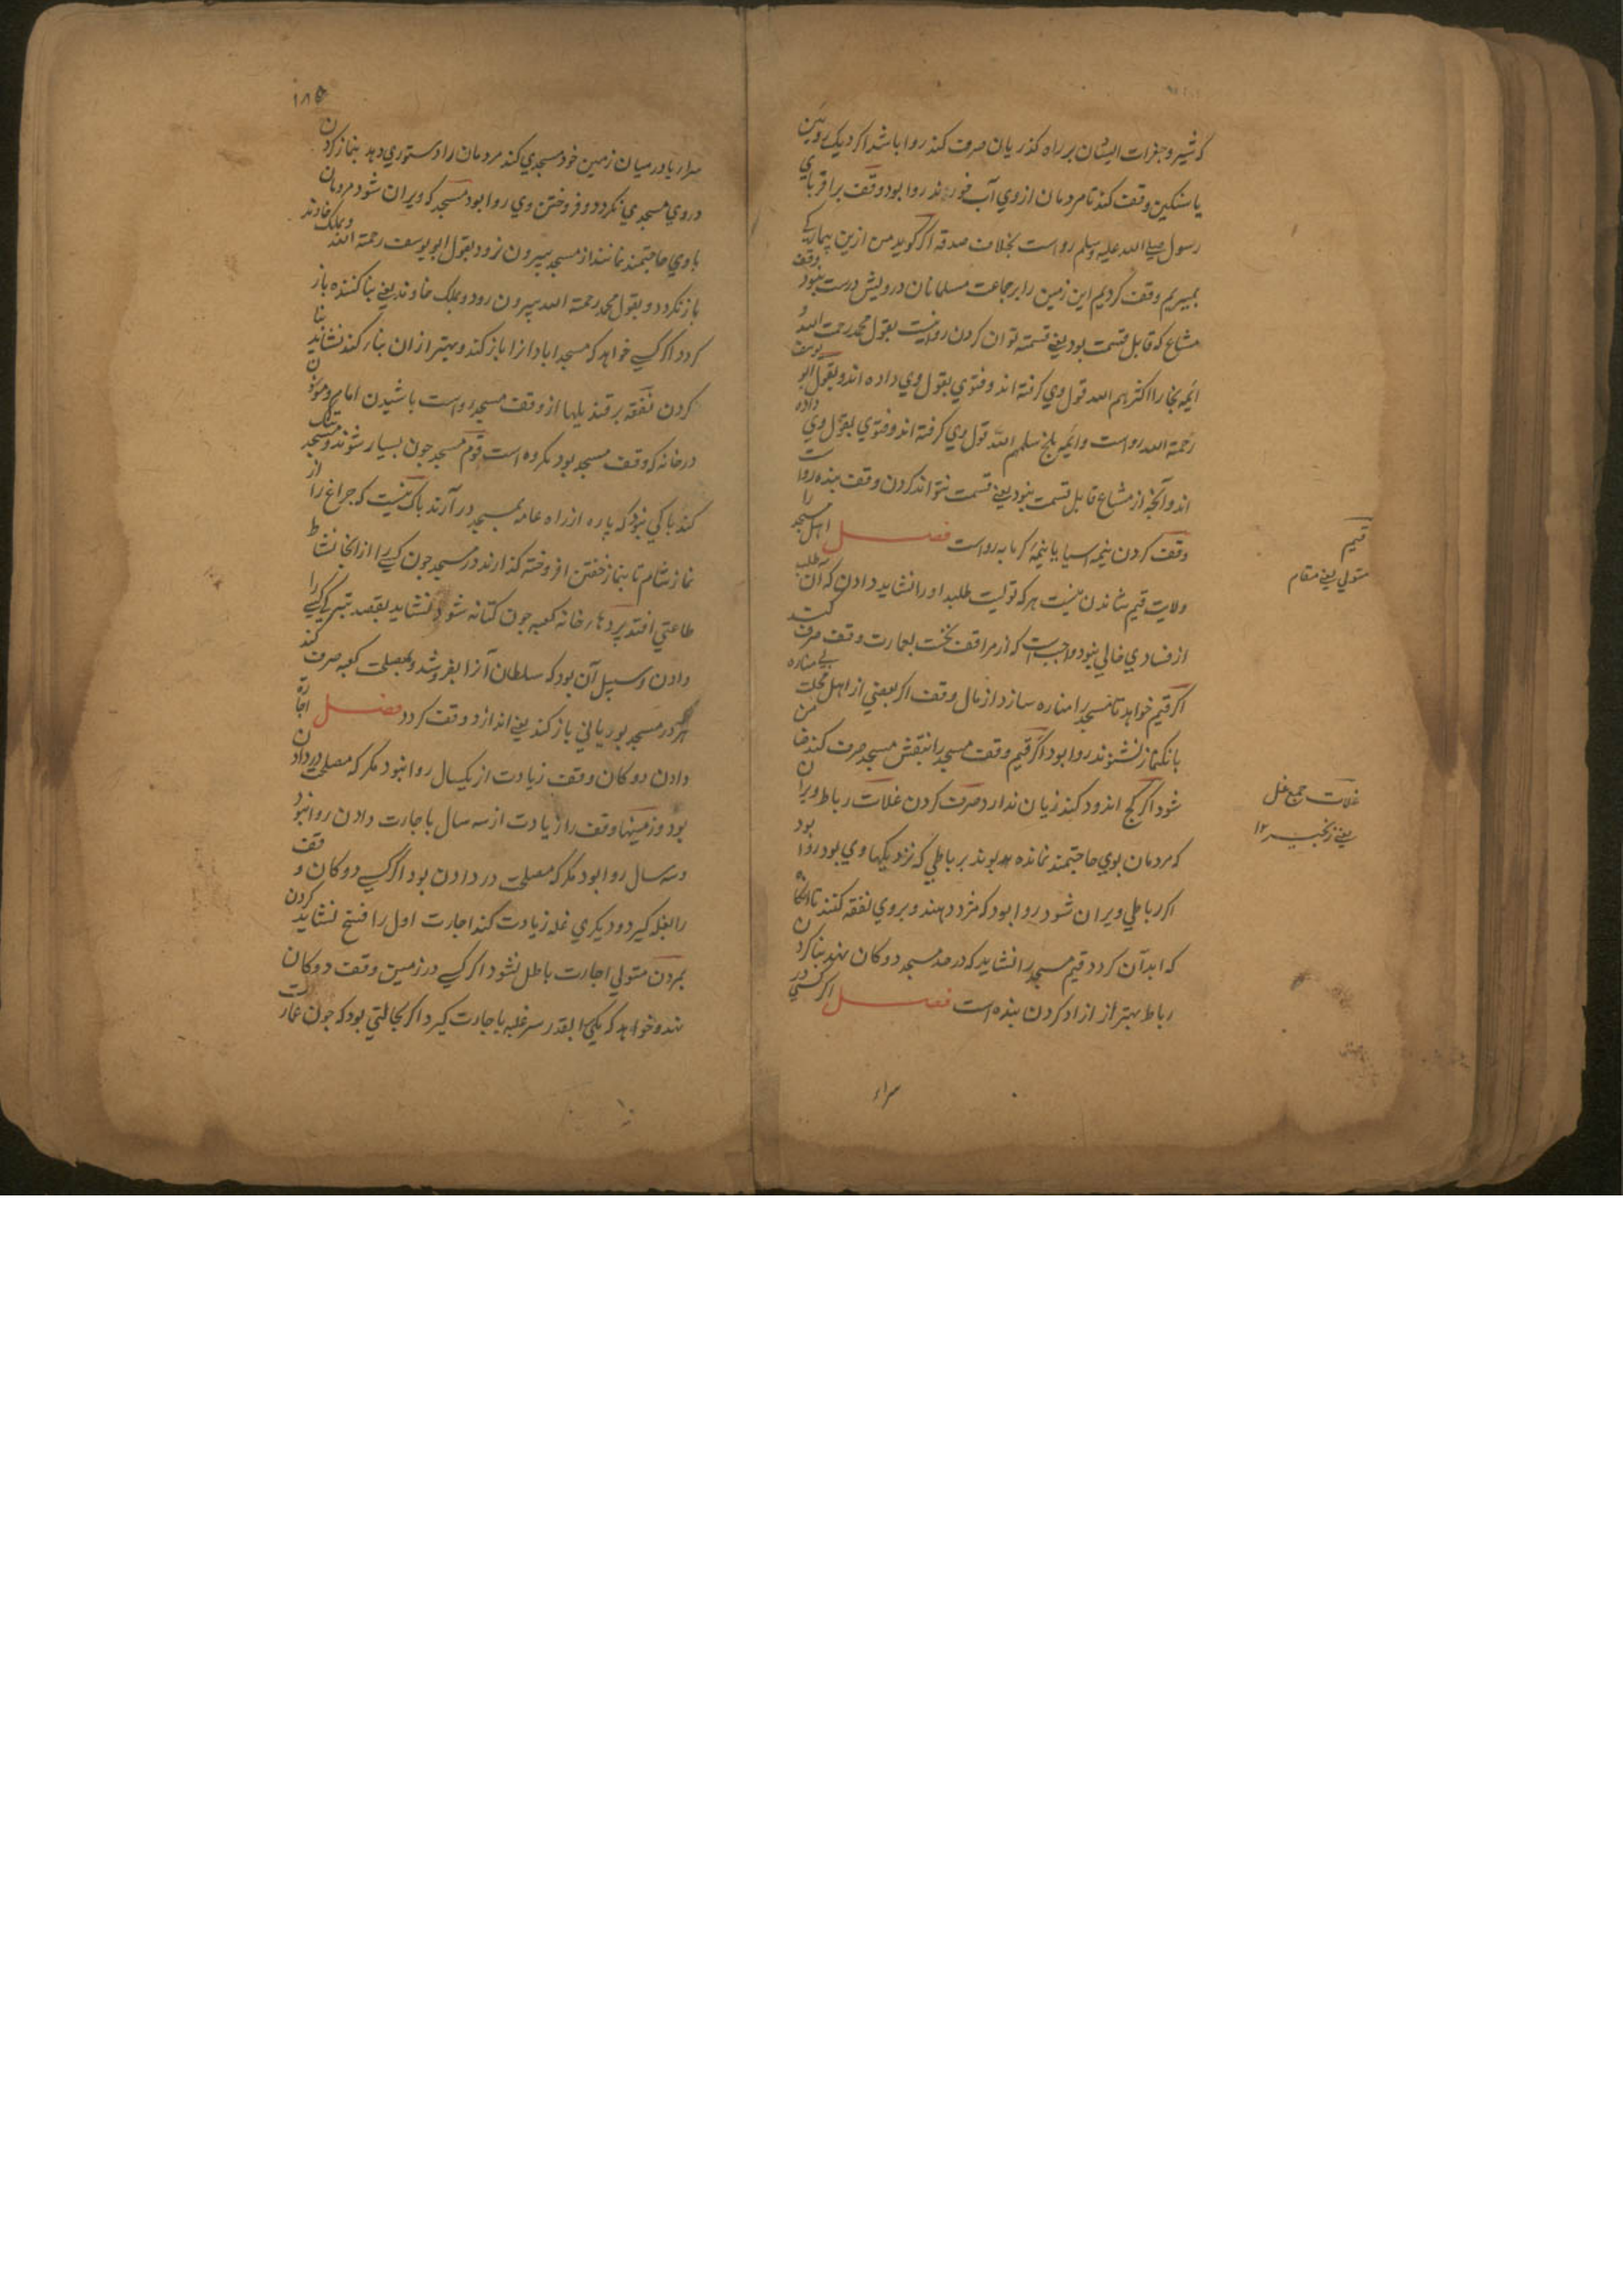 که شیر و جغرات ایشان بر راه کذریان صرف کند روا باشد اکر دیک رویین
یا سنکین وقف کند تا مردمان ازوی آب خورند روا بود وقف بر اقربای
رسول صلی الله علیه وسلم رواست بخلاف صدقه اکر کوید من ازین بیماری
بمیریم وقف کردیم این زمین را بر جماعت مسلمانان درویش درست نبود وقف
مشاع که قابل قسمت بود یعنی قسمته توان کردن روانیست بقول محمد رحمة الله و
ایمه بخارا اکثرهم الله قول وی کرفته اند و فتوی بقول وی داده اند و بقول ابو یوسف
رحمة الله رواست و ایمه بلخ سلمهم الله قول وی کرفته اند و فتوی بقول وی داده
اند و آنچه از مشاع قابل قسمت نبود یعنی قسمت نتواند کردن وقف بنده رواست
وقف کردن نیمه اسیا یا نیمه کرمابه رواست فصل اهل مسجد را
ولایت قیم نشاندن نیست هر که تولیت طلبد او را نشاید دادن که آن طلب
از فسادی خالی نبود واجبست که از مراقف نخست بعمارت وقف صرف کنند
اکر قیم خواهد تا مسجد را مناره سازد از مال وقف اکر بعضی از اهل محلت بی مناره
بانک نماز نشنوند روا بود اکر قیم وقف مسجد را بنقش مسجد صرف کند ضامن
شود اکر کج اندود کند زیان ندارد صرف کردن غلات رباط ویران
که مردمان بوی حاجتمند نمانده بوند بر باطی که نزدیکها وی بود روا بود
اکر رباطی ویران شود روا بود که مزد دهند و بروی نفقه کنند تا انکاه
که ابدآن کردد قیم مسجد را نشاید که در حد مسجد دوکان نهد بنا کردن
رباط بهتر از ازاد کردن بنده است فصل اکر کسی در
سرای
قیم
متولی یعنی مقام
غلات جمع غل
یعنی زنجیر ۱۲
۱۸۵
سرار یا در میان زمین خود مسجدی کند مردمان را دستوری دهد بنماز کردن
دروی مسجدی نکردد و فروختن وی روا بود مسجد که ویران شود مردمان
باوی حاجتمند نمانند از مسجد بیرون نرود بقول ابو یوسف رحمة الله و بملک خاوند
باز نکردد و بقول محمد رحمة الله بیرون رود و بملک خاوند یعنی بنا کننده باز
کردد اکر کسی خواهد که مسجد ابادانرا باز کند و بهتر ازان بناء کند نشاید بنا
کردن نفقه بر قندیلها از وقف مسجد رواست باشیدن امام و موذن
در خانه که وقف مسجد بود مکروه است قوم مسجد چون بسیار شوند و مسجد تنک
کند باکی نبود که پاره از راه عامه بمسجد در آرند باک نیست که چراغ را از
نماز شام تا بنماز خفتن افروخته کذارند در مسجد چون کسی را از انجا نشاط
طاعتی افتد پردهاء خانه کعبه چون کهنه شود نشاید بقصد تبرک کسی را
دادن و سبیل آن بود که سلطان آنرا بفروشد و بمصلحت کعبه صرف کند
هر که در مسجد بوریائی باز کند یعنی اندازد وقف کردد فصل اجاره
دادن دوکان وقف زیادت از یکسال روا نبود مکر که مصلحت در دادن
بود و زمینها وقف را زیادت از سه سال باجارت دادن روا نبود
و سه سال روا بود مکر که مصلحت در دادن بود اکر کسی دوکان وقف
را بغله کیرد و دیکری غله زیادت کند اجارت اول را فسخ نشاید کردن
بمردن متولی اجارت باطل نشود اکر کسی در زمین وقف دوکان
نهد و خواهد که یکی را بقدر سر غله باجارت کیرد اکر بحالتی بود که چون عمارت